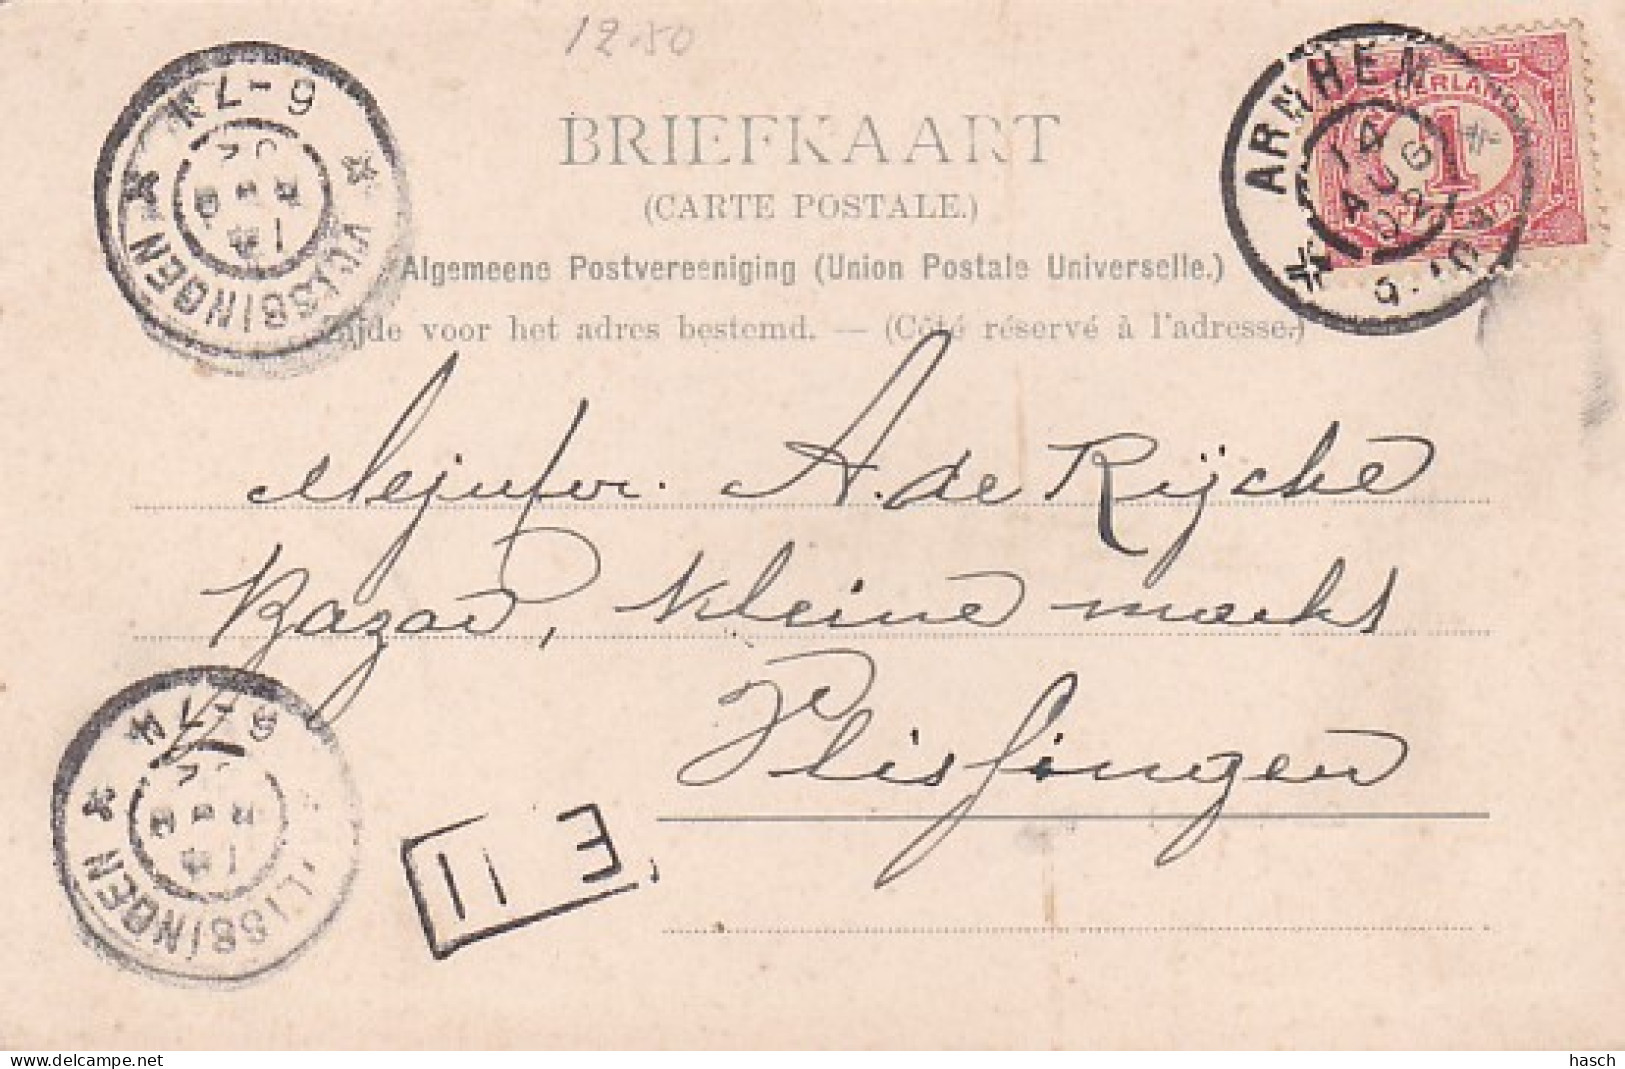 12.50
BRIEFKAART
(CARTE POSTALE.)
Algemeene Postvereeniging (Union Postale Universelle.)
Zijde voor het adres bestemd. — (Côté réservé à l'adresse.)
ARNHEM
14
AUG
02
NEDERLAND
1
VLISSINGEN
6-7N
Mejufvr. A. de Rijcke
Bazar, Kleine markt
Vlissingen
VLISSINGEN
6-7N
11 E
hasch